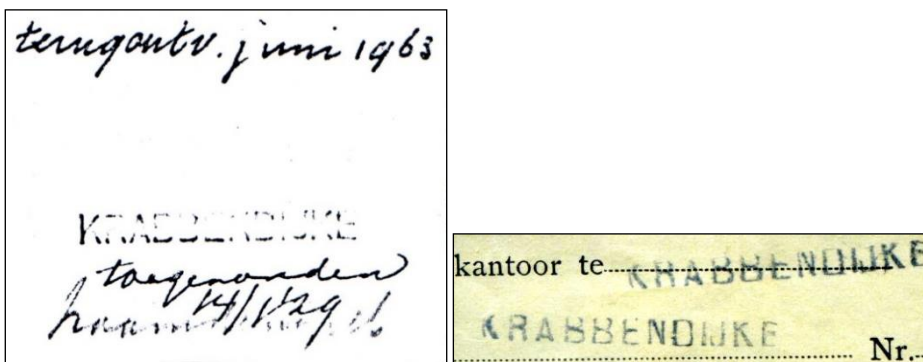 terugontv. juni 1963
KRABBENDIJKE
toegezonden
14/1'29
kantoor te KRABBENDIJKE
KRABBENDIJKE
Nr.